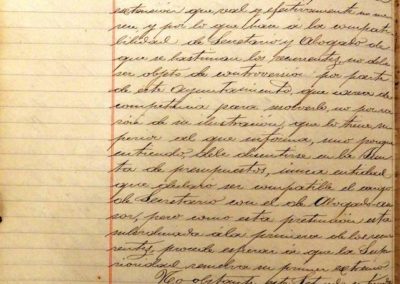 extensión que real y efectivamente me me
rece, y por lo que hace á la compati
bilidad de Secretario y Abogado de
que se lastiman los recurrentes, no debe
ser objeto de controversia por parte
de este Ayuntamiento, que carece de
competencia para resolverlo, no por ra
zón de su ilustración, que la tiene su
perior al que informa, sino porque
entiende, debe discutirse en la Jun
ta de presupuestos, única entidad
que declaró ser compatible el cargo
de Secretario con el de Abogado ase
sor, pero como esta pretensión está
subordinada á la primera de los recu
rrentes, procede esperar á que la Sup
rioridad resuelva su primer extremo
No obstante